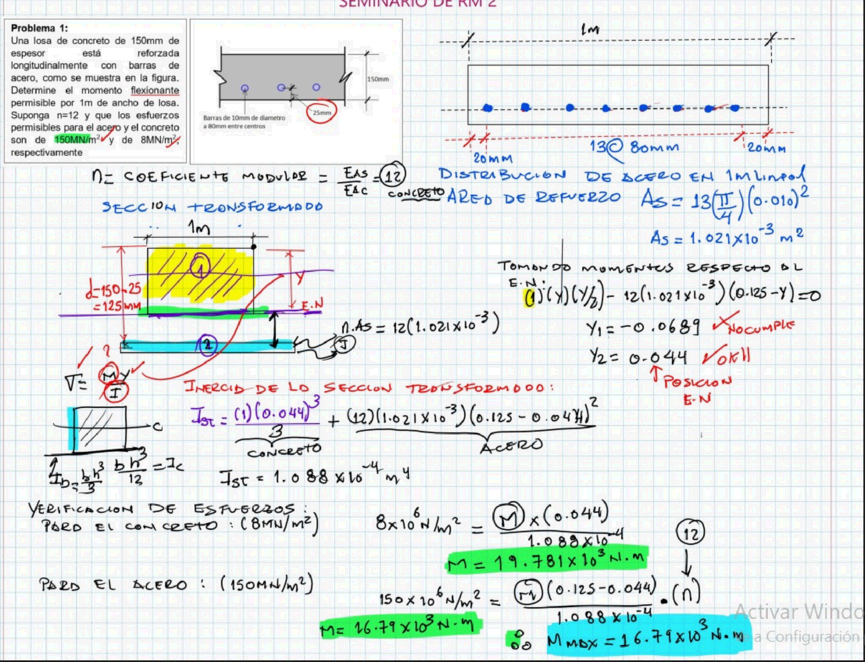 SEMINARIO DE RM 2
Problema 1:
Una losa de concreto de 150mm de
espesor está reforzada
longitudinalmente con barras de
acero, como se muestra en la figura.
Determine el momento flexionante
permisible por 1m de ancho de losa.
Suponga n=12 y que los esfuerzos
permisibles para el acero y el concreto
son de 150MN/m² y de 8MN/m²,
respectivamente
150mm
25mm
Barras de 10mm de diametro
a 80mm entre centros
1m
20mm
13@ 80mm
20mm
n = COEFICIENTE MODULAR = EAs/EAc = 12
CONCRETO
DISTRIBUCION DE ACERO EN 1M LINEAL
AREA DE REFUERZO As = 13(π/4)(0.010)²
As = 1.021x10⁻³ m²
SECCION TRANSFORMADA
1m
1
d=150-25
=125mm
Y
E.N
2
n.As = 12(1.021x10⁻³)
TOMANDO MOMENTOS RESPECTO AL
E.N:
(1)(Y)(Y/2) - 12(1.021x10⁻³)(0.125-Y)=0
Y1 = -0.0689 NO CUMPLE
Y2 = 0.044 OK!!
POSICION
E.N
?
σ = MY/I
INERCIA DE LA SECCION TRANSFORMADA:
IST = (1)(0.044)³/3 + (12)(1.021x10⁻³)(0.125-0.044)²
CONCRETO
ACERO
IST = 1.088x10⁻⁴ m⁴
c
Ib = bh³/3
bh³/12 = Ic
VERIFICACION DE ESFUERZOS:
PARA EL CONCRETO: (8MN/m²)
8x10⁶ N/m² = M x (0.044)/1.088x10⁻⁴
M = 19.781x10³ N.m
12
PARA EL ACERO: (150MN/m²)
150x10⁶ N/m² = M(0.125-0.044)/1.088x10⁻⁴ . (n)
M = 16.79x10³ N.m
∴ MMAX = 16.79x10³ N.m
Activar Windo
a Configuración